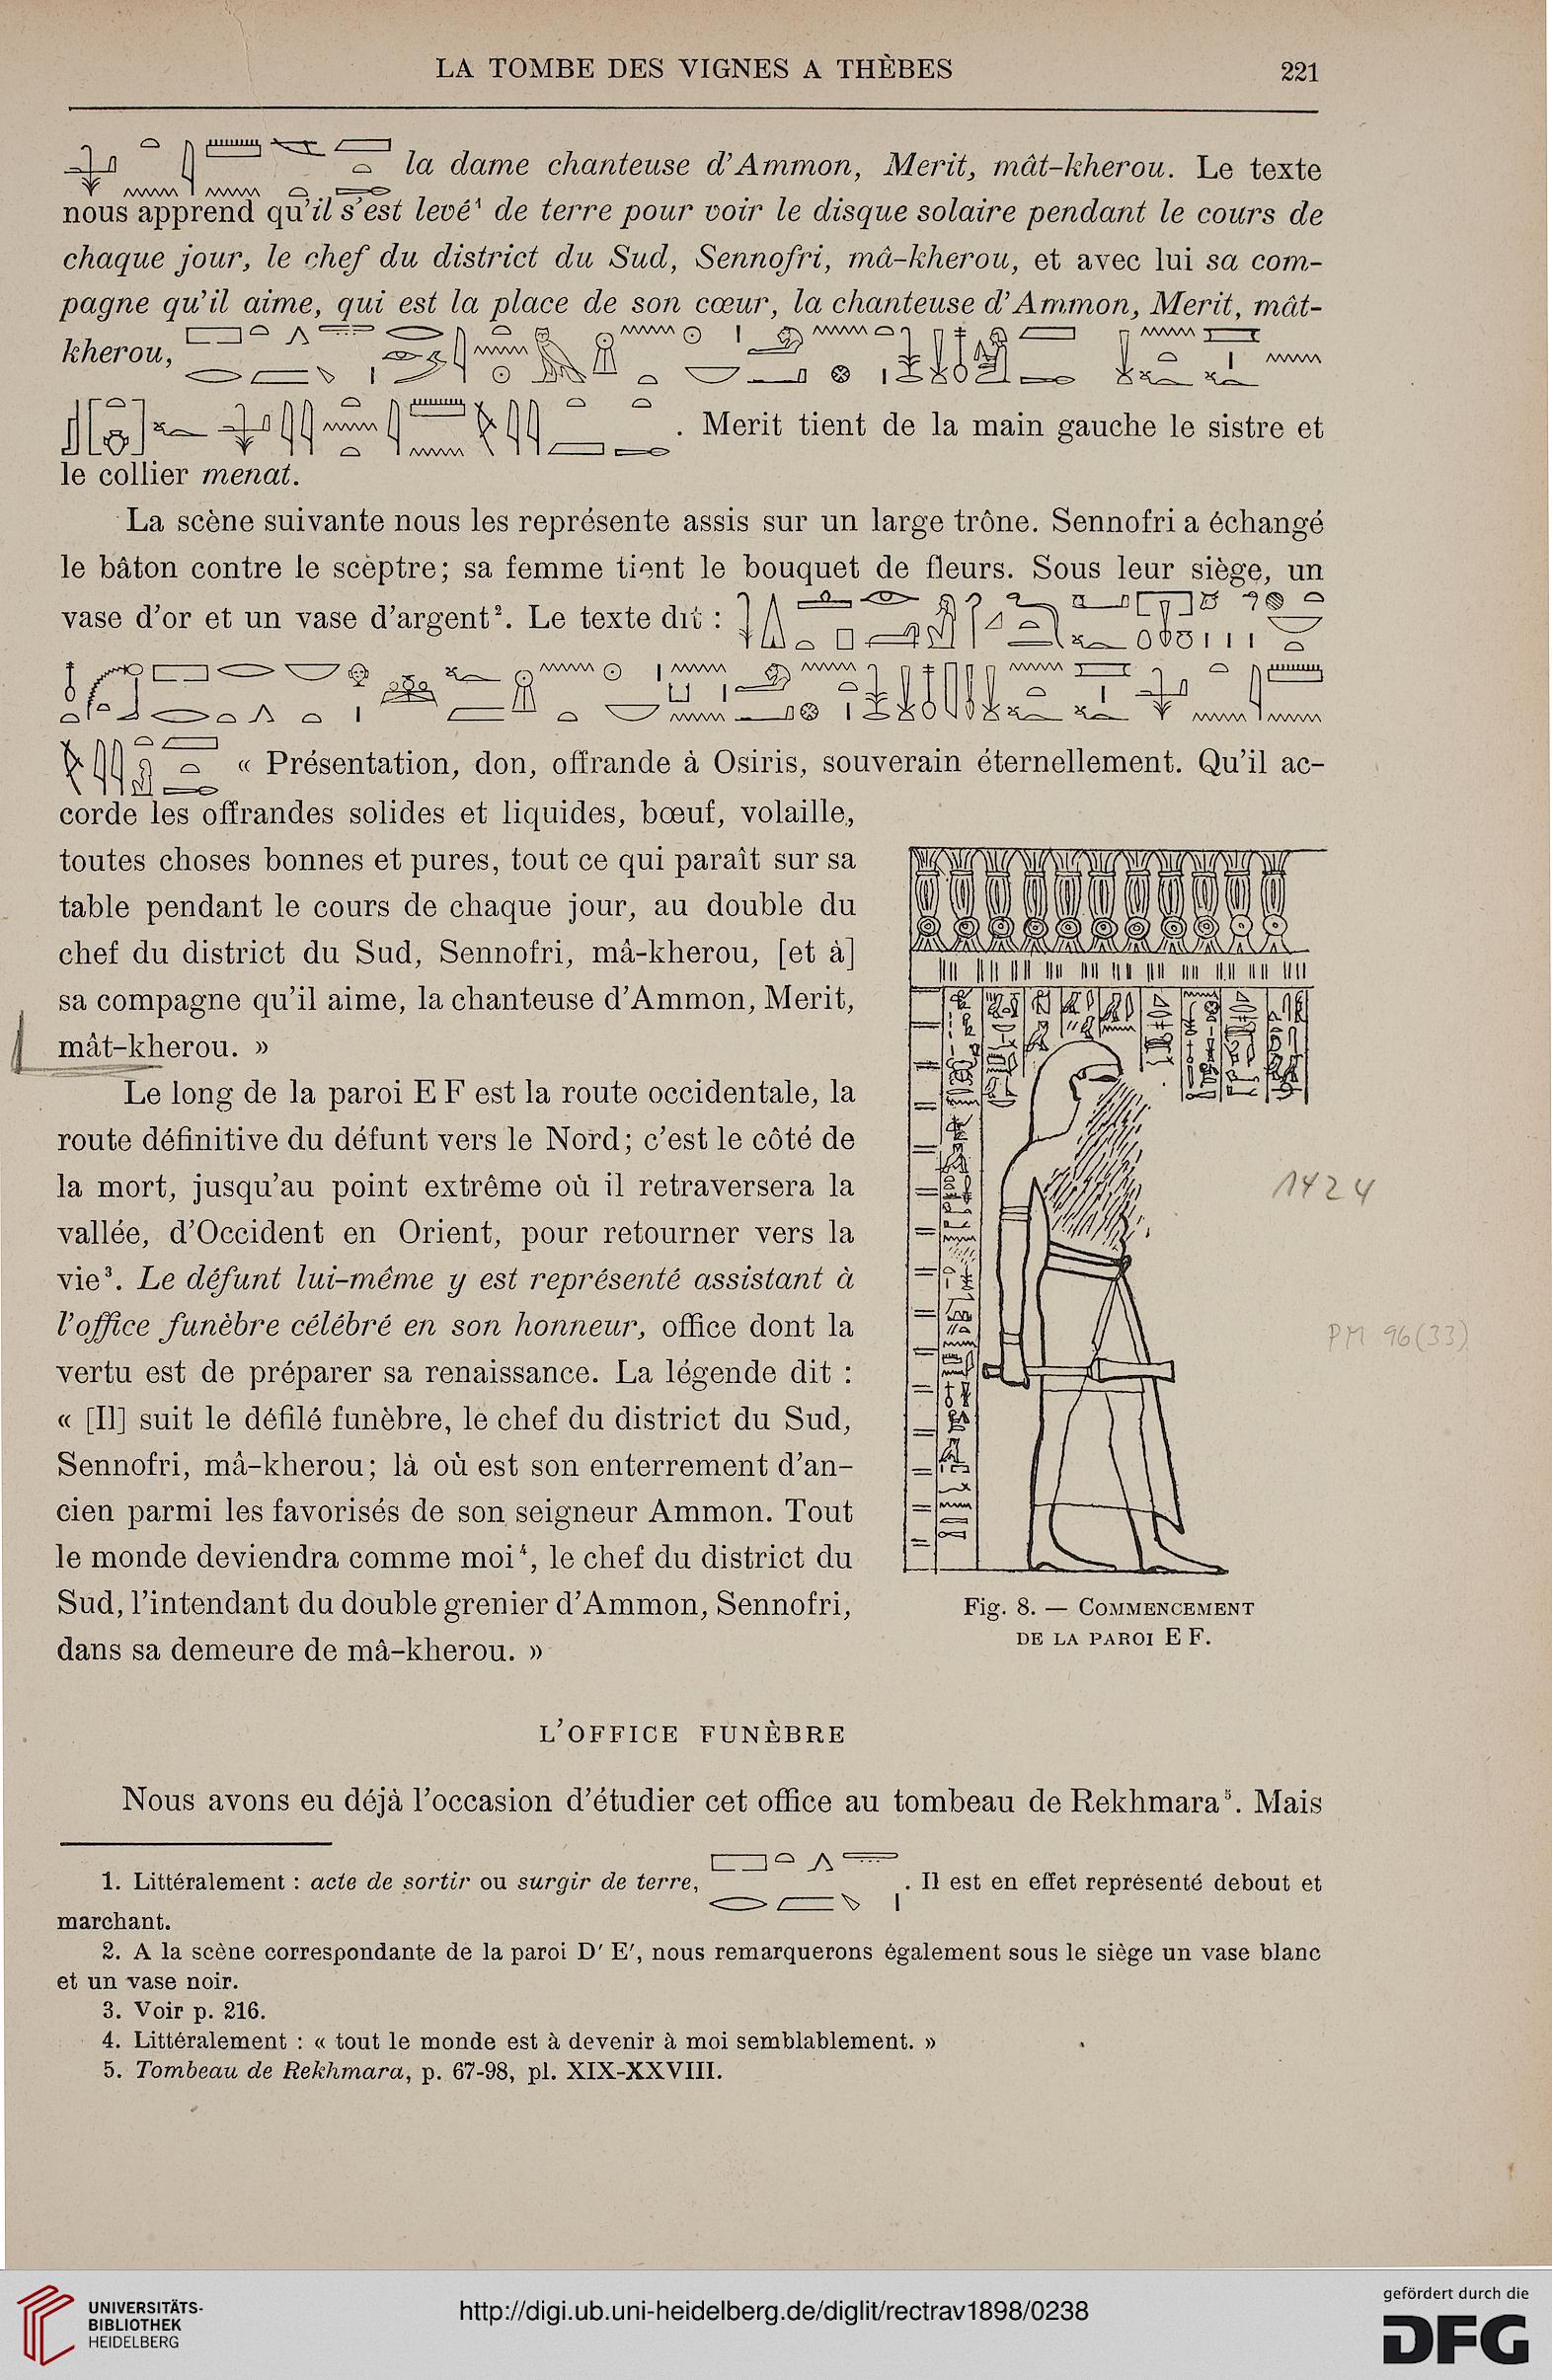 LA TOMBE DES VIGNES A THÈBES 221
la dame chanteuse d'Ammon, Merit, mât-kherou. Le texte
nous apprend qu'il s'est levé¹ de terre pour voir le disque solaire pendant le cours de
chaque jour, le chef du district du Sud, Sennofri, mâ-kherou, et avec lui sa com-
pagne qu'il aime, qui est la place de son cœur, la chanteuse d'Ammon, Merit, mât-
kherou,
. Merit tient de la main gauche le sistre et
le collier menat.
La scène suivante nous les représente assis sur un large trône. Sennofri a échangé
le bâton contre le sceptre; sa femme tient le bouquet de fleurs. Sous leur siège, un
vase d'or et un vase d'argent². Le texte dit :
« Présentation, don, offrande à Osiris, souverain éternellement. Qu'il ac-
corde les offrandes solides et liquides, bœuf, volaille,
toutes choses bonnes et pures, tout ce qui paraît sur sa
table pendant le cours de chaque jour, au double du
chef du district du Sud, Sennofri, mâ-kherou, [et à]
sa compagne qu'il aime, la chanteuse d'Ammon, Merit,
mât-kherou. »
Le long de la paroi E F est la route occidentale, la
route définitive du défunt vers le Nord; c'est le côté de
la mort, jusqu'au point extrême où il retraversera la
vallée, d'Occident en Orient, pour retourner vers la
vie³. Le défunt lui-même y est représenté assistant à
l'office funèbre célébré en son honneur, office dont la
vertu est de préparer sa renaissance. La légende dit :
« [Il] suit le défilé funèbre, le chef du district du Sud,
Sennofri, mâ-kherou; là où est son enterrement d'an-
cien parmi les favorisés de son seigneur Ammon. Tout
le monde deviendra comme moi⁴, le chef du district du
Sud, l'intendant du double grenier d'Ammon, Sennofri,
dans sa demeure de mâ-kherou. »
1424
PM 96(33)
Fig. 8. — COMMENCEMENT
DE LA PAROI E F.
L'OFFICE FUNÈBRE
Nous avons eu déjà l'occasion d'étudier cet office au tombeau de Rekhmara⁵. Mais
1. Littéralement : acte de sortir ou surgir de terre, . Il est en effet représenté debout et
marchant.
2. A la scène correspondante de la paroi D' E', nous remarquerons également sous le siège un vase blanc
et un vase noir.
3. Voir p. 216.
4. Littéralement : « tout le monde est à devenir à moi semblablement. »
5. Tombeau de Rekhmara, p. 67-98, pl. XIX-XXVIII.
UNIVERSITÄTS-
BIBLIOTHEK
HEIDELBERG
http://digi.ub.uni-heidelberg.de/diglit/rectrav1898/0238
gefördert durch die
DFG